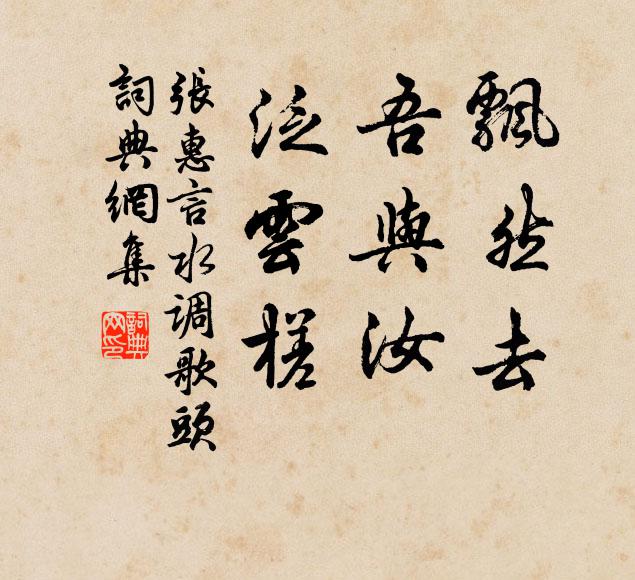 飄然去
吾與汝
泛雲槎
張惠言水调歌頭
詞典網集
詞典
网印